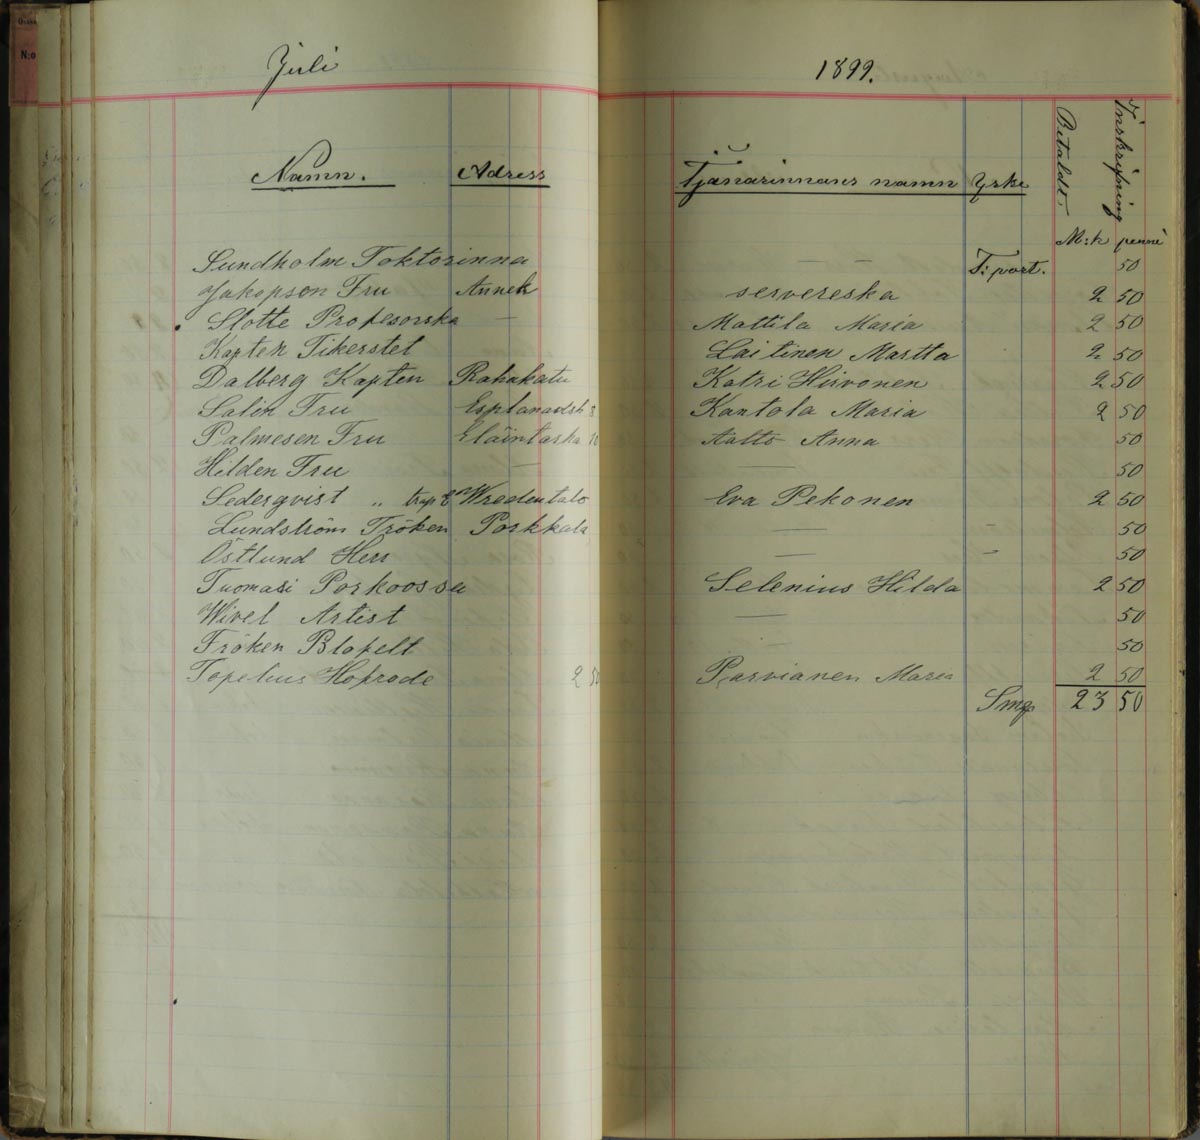 Juli 1899.
Namn. Adress Tjänarinnans namn Yrke Betaldt. Inskrifning
M:k penni
Sundholm Toktorinna — — T: port. 50
Jakopson Fru Annek servereska 2 50
Slotte Profesorska — Mattila Maria 2 50
Kapten Tikerstet Laitinen Martta 2 50
Dalberg Kapten Rahakatu Katri Hirvonen 2 50
Salin Fru Esplanadsk 8 Kantola Maria 2 50
Palmesen Fru Eläintarha 10 Aalto Anna 50
Hilden Fru — — 50
Sedergvist " trap E Wredentalo Eva Pekonen 2 50
Lundström Fröken Porkkala — - 50
Östlund Herr — - 50
Tuomasi Porkoossa Selenius Hilda 2 50
Wivel Artist — 50
Fröken Blofelt 50
Topelius Hofrode 2 50 Parvianen Maria 2 50
Smga 23 50